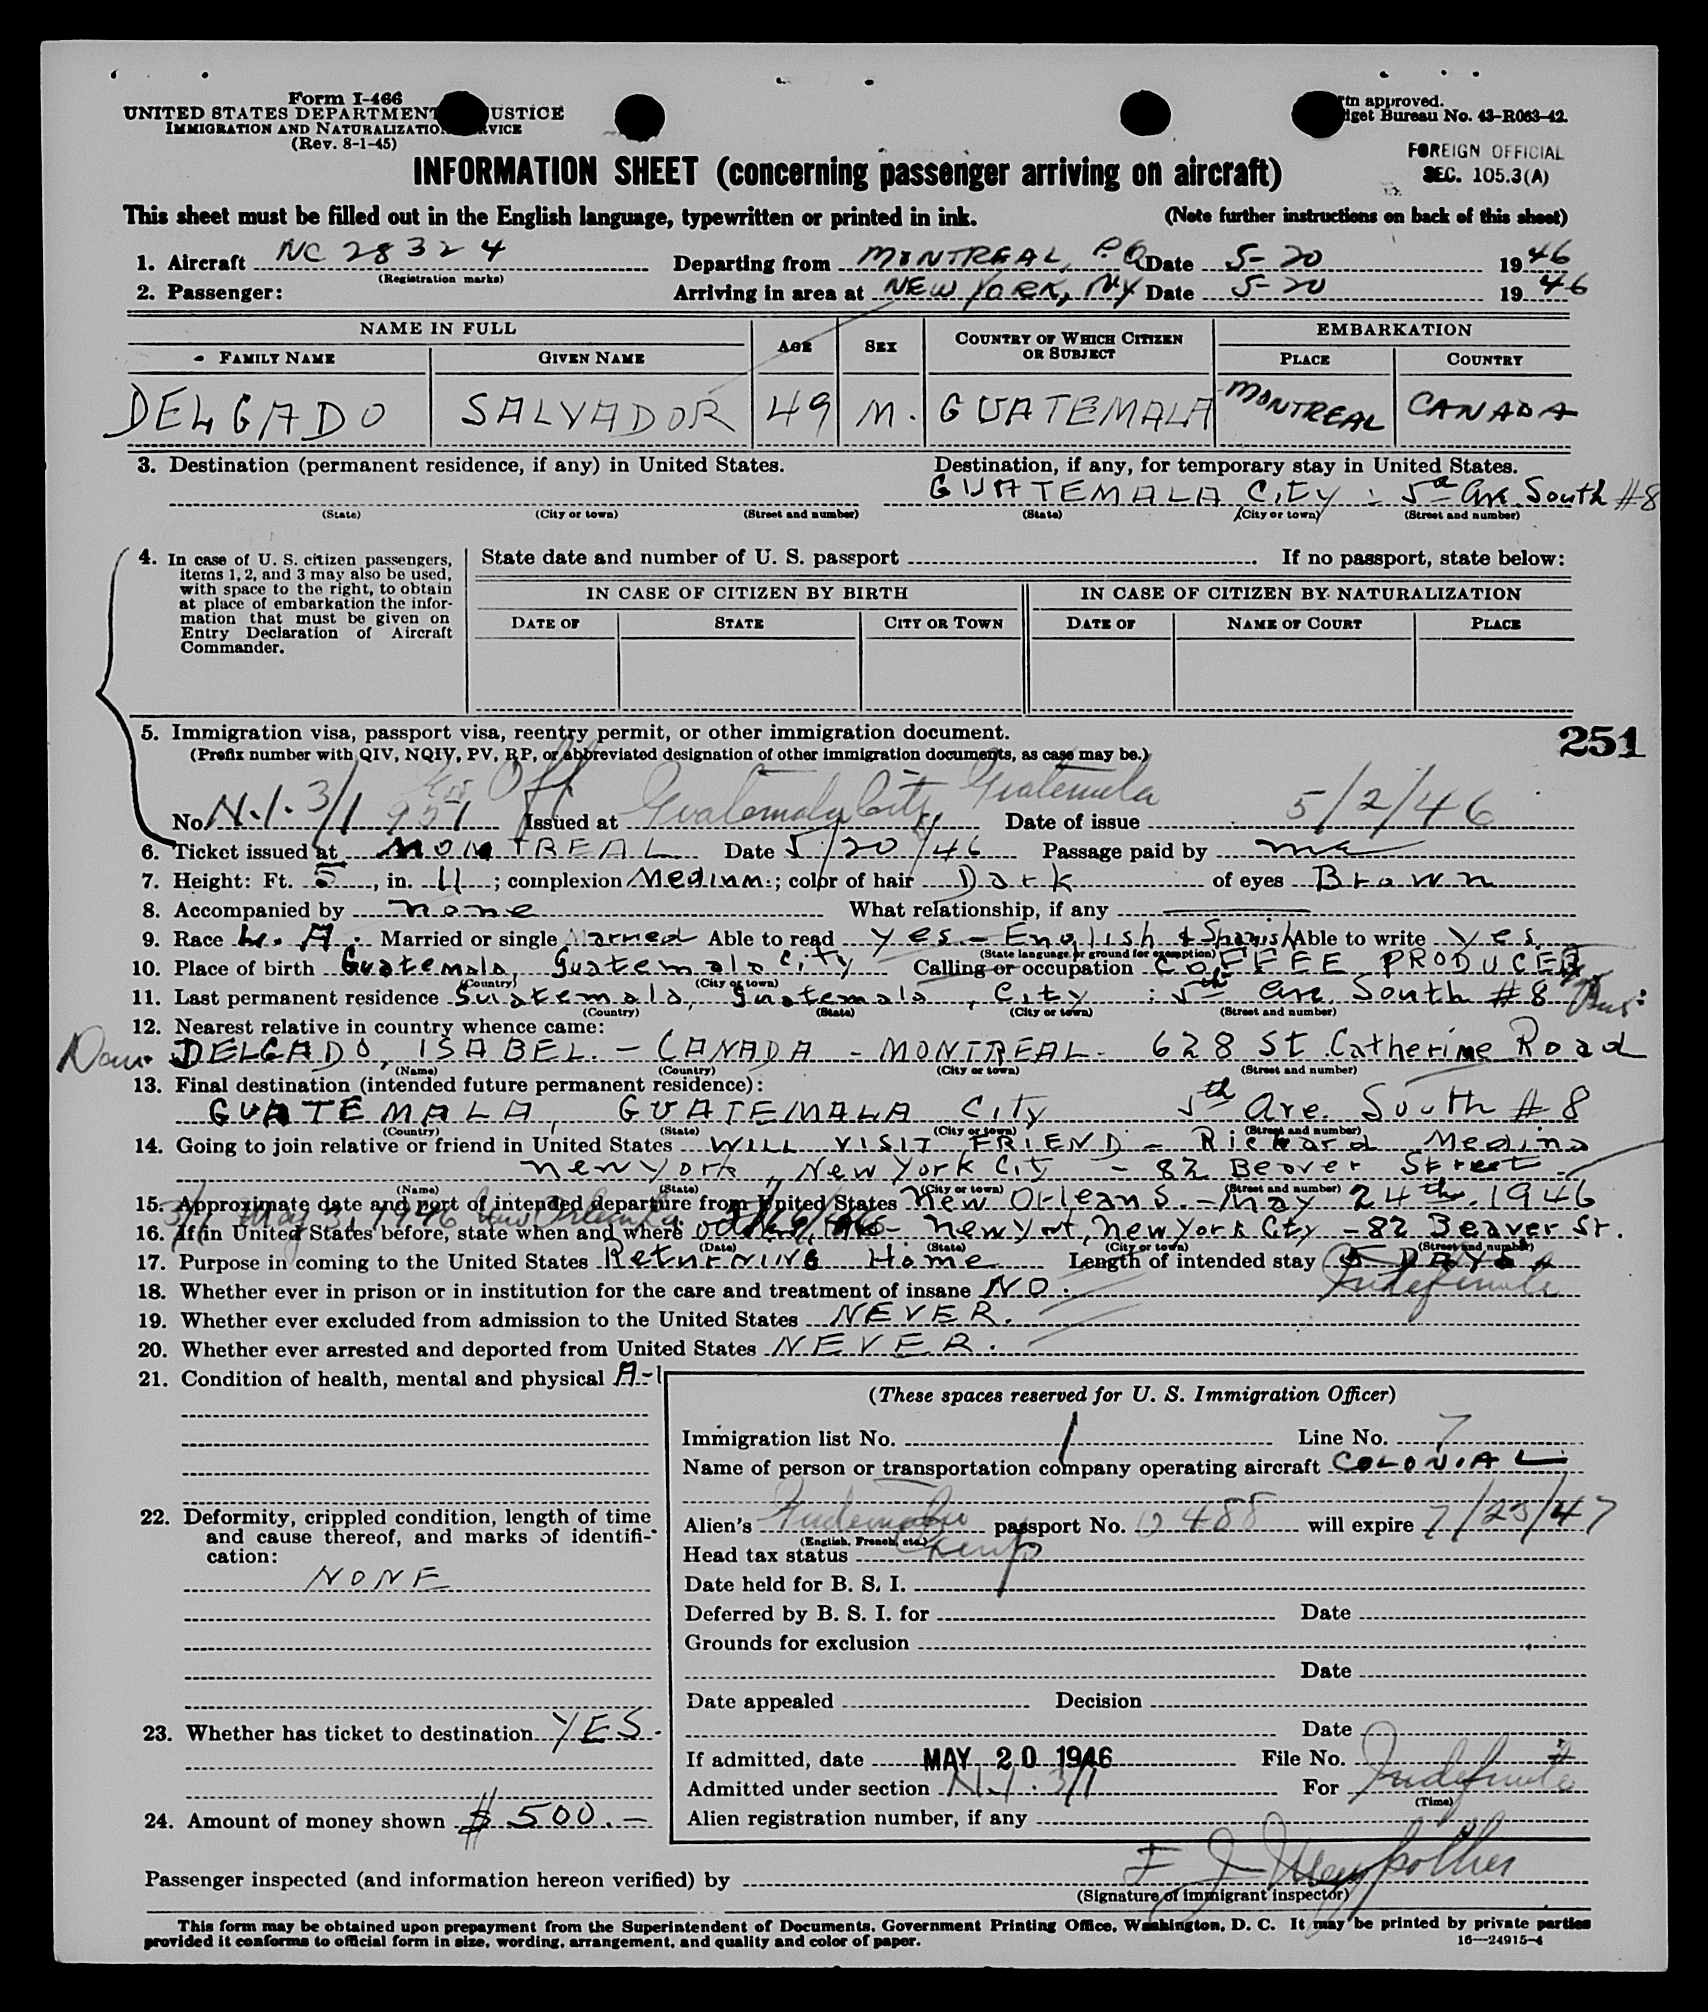 Form I-466
UNITED STATES DEPARTMENT USTICE
IMMIGRATION AND NATURALIZATIO RVICE
(Rev. 8-1-45)
approved.
dget Bureau No. 43-R063-42.
FOREIGN OFFICIAL
SEC. 105.3(A)
INFORMATION SHEET (concerning passenger arriving on aircraft)
This sheet must be filled out in the English language, typewritten or printed in ink. (Note further instructions on back of this sheet)
1. Aircraft NC 28324 Departing from MONTREAL, P.Q Date 5-20 1946
(Registration marks)
2. Passenger: Arriving in area at NEW YORK, NY Date 5-20 1946
NAME IN FULL AGE SEX COUNTRY OF WHICH CITIZEN OR SUBJECT EMBARKATION
FAMILY NAME GIVEN NAME PLACE COUNTRY
DELGADO SALVADOR 49 M. GUATEMALA MONTREAL CANADA
3. Destination (permanent residence, if any) in United States. Destination, if any, for temporary stay in United States.
GUATEMALA City : 5a Ave. South #8
(State) (City or town) (Street and number) (State) (City or town) (Street and number)
4. In case of U. S. citizen passengers, items 1, 2, and 3 may also be used, with space to the right, to obtain at place of embarkation the information that must be given on Entry Declaration of Aircraft Commander.
State date and number of U. S. passport If no passport, state below:
IN CASE OF CITIZEN BY BIRTH IN CASE OF CITIZEN BY NATURALIZATION
DATE OF STATE CITY OR TOWN DATE OF NAME OF COURT PLACE
5. Immigration visa, passport visa, reentry permit, or other immigration document.
251
(Prefix number with QIV, NQIV, PV, RP, or abbreviated designation of other immigration documents, as case may be.)
No. N.I. 3/1 951 Off Issued at Guatemala City Guatemala Date of issue 5/2/46
6. Ticket issued at MONTREAL Date 5/20/46 Passage paid by me
7. Height: Ft. 5, in. 11; complexion Medium.; color of hair Dark of eyes Brown
8. Accompanied by none What relationship, if any
9. Race Married or single Married Able to read yes - English & Spanish Able to write yes
(State language or ground for exemption)
10. Place of birth Guatemala, Guatemala City Calling or occupation COFFEE PRODUCER
(Country) (City or town)
11. Last permanent residence Guatemala, guatemala, City : 5th ave. South #8
(Country) (State) (City or town) (Street and number)
12. Nearest relative in country whence came:
DELGADO, ISABEL. - CANADA - MONTREAL - 628 St Catherine Road
(Name) (Country) (City or town) (Street and number)
13. Final destination (intended future permanent residence):
GUATEMALA, GUATEMALA City 5th Ave. South #8
(Country) (State) (City or town) (Street and number)
14. Going to join relative or friend in United States WILL VISIT FRIEND - Richard Medina
new york, New York City - 82 Beaver Street
(Name) (State) (City or town) (Street and number)
15. Approximate date and port of intended departure from United States New Orleans. - May 24th. 1946
16. If in United States before, state when and where new york, new york City - 82 Beaver St.
(Date) (State) (City or town) (Street and number)
17. Purpose in coming to the United States Returning Home Length of intended stay 5 DAYS Indefinite
18. Whether ever in prison or in institution for the care and treatment of insane NO.
19. Whether ever excluded from admission to the United States NEVER.
20. Whether ever arrested and deported from United States NEVER.
21. Condition of health, mental and physical A-1
(These spaces reserved for U. S. Immigration Officer)
Immigration list No. 1 Line No. 7
Name of person or transportation company operating aircraft COLONIAL
22. Deformity, crippled condition, length of time and cause thereof, and marks of identification:
NONE
Alien's passport No. 488 will expire 7/23/47
(English, French, etc.)
Head tax status Exempt
Date held for B. S. I.
Deferred by B. S. I. for Date
Grounds for exclusion
Date
Date appealed Decision
23. Whether has ticket to destination YES.
Date
If admitted, date MAY 20 1946 File No.
Admitted under section N.I. 3/1 For Indefinite
(Time)
24. Amount of money shown $ 500.-
Alien registration number, if any
Passenger inspected (and information hereon verified) by
(Signature of immigrant inspector)
This form may be obtained upon prepayment from the Superintendent of Documents, Government Printing Office, Washington, D. C. It may be printed by private parties
provided it conforms to official form in size, wording, arrangement, and quality and color of paper.
16-24915-4